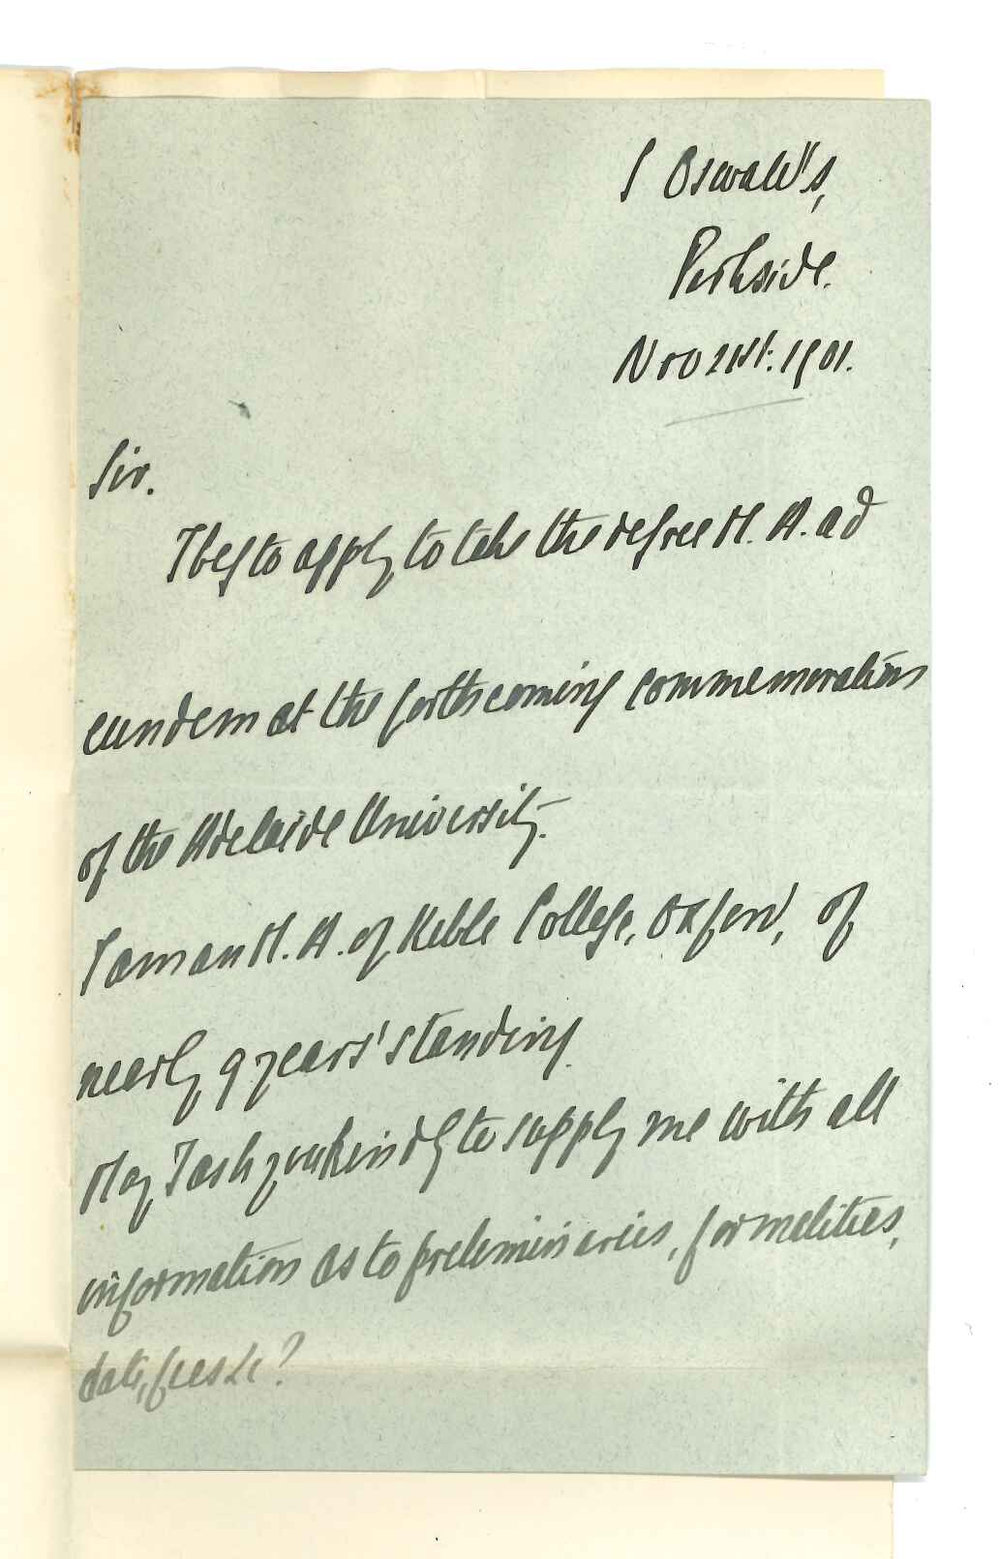 S Oswald's,
Parkside.
Nov 21st. 1901.
Sir.
I beg to apply to take the degree M. A. ad
eundem at the forthcoming commemoration
of the Adelaide University.
I am an M. A. of Keble College, Oxford, of
nearly 9 years' standing.
May I ask you kindly to supply me with all
information as to preliminaries, formalities,
date, fees &c?